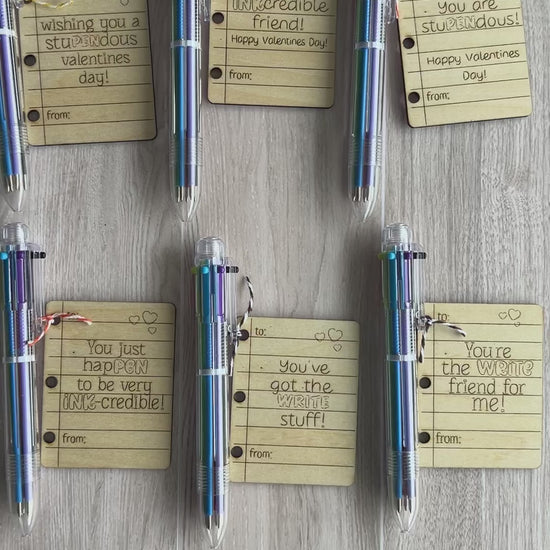 wishing you a
stuPENdous
valentines
day!
from:
INKcredible
friend!
Happy Valentines Day!
from:
You are
stuPENdous!
Happy Valentines
Day!
from:
You just
hapPEN
to be very
INK-credible!
from:
to:
You've
got the
WRITE
stuff!
from:
to:
You're
the WRITE
friend for
me!
from: